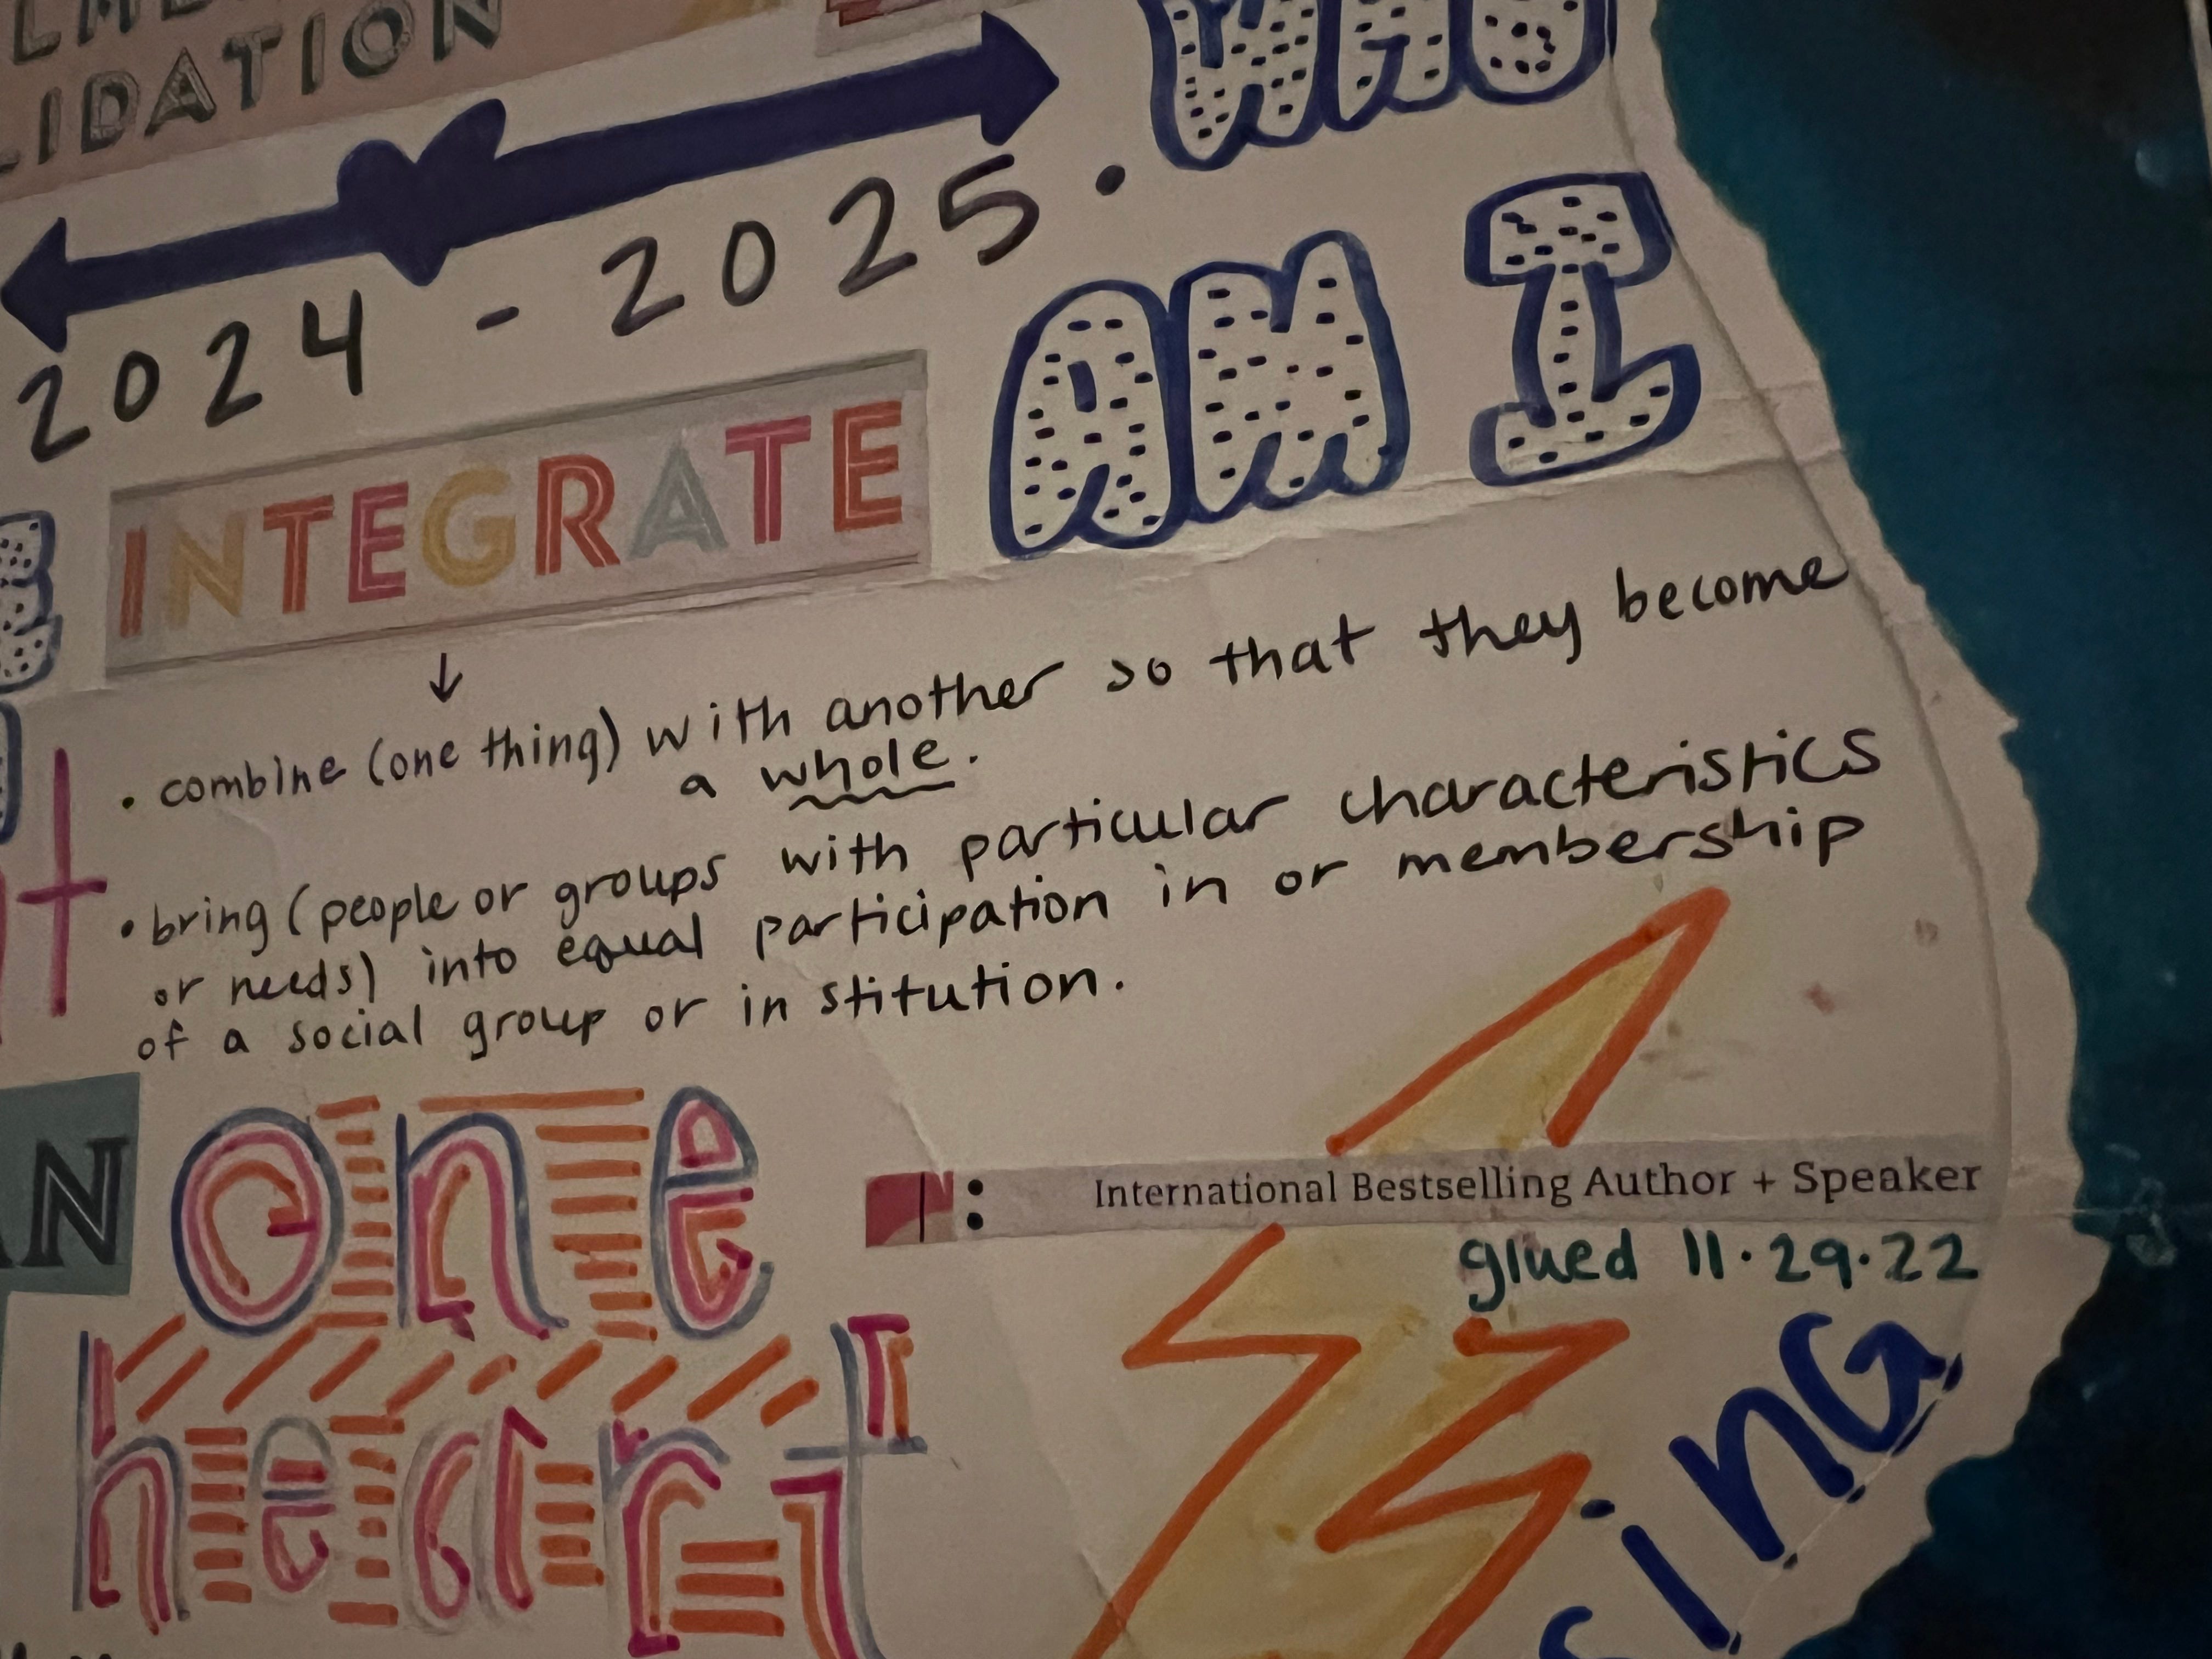 LIDATION
WHO
2024 - 2025.
AM I
INTEGRATE
↓
• combine (one thing) with another so that they become
a whole.
• bring (people or groups with particular characteristics
or needs) into equal participation in or membership
of a social group or institution.
one
International Bestselling Author + Speaker
glued 11.29.22
heart
SING